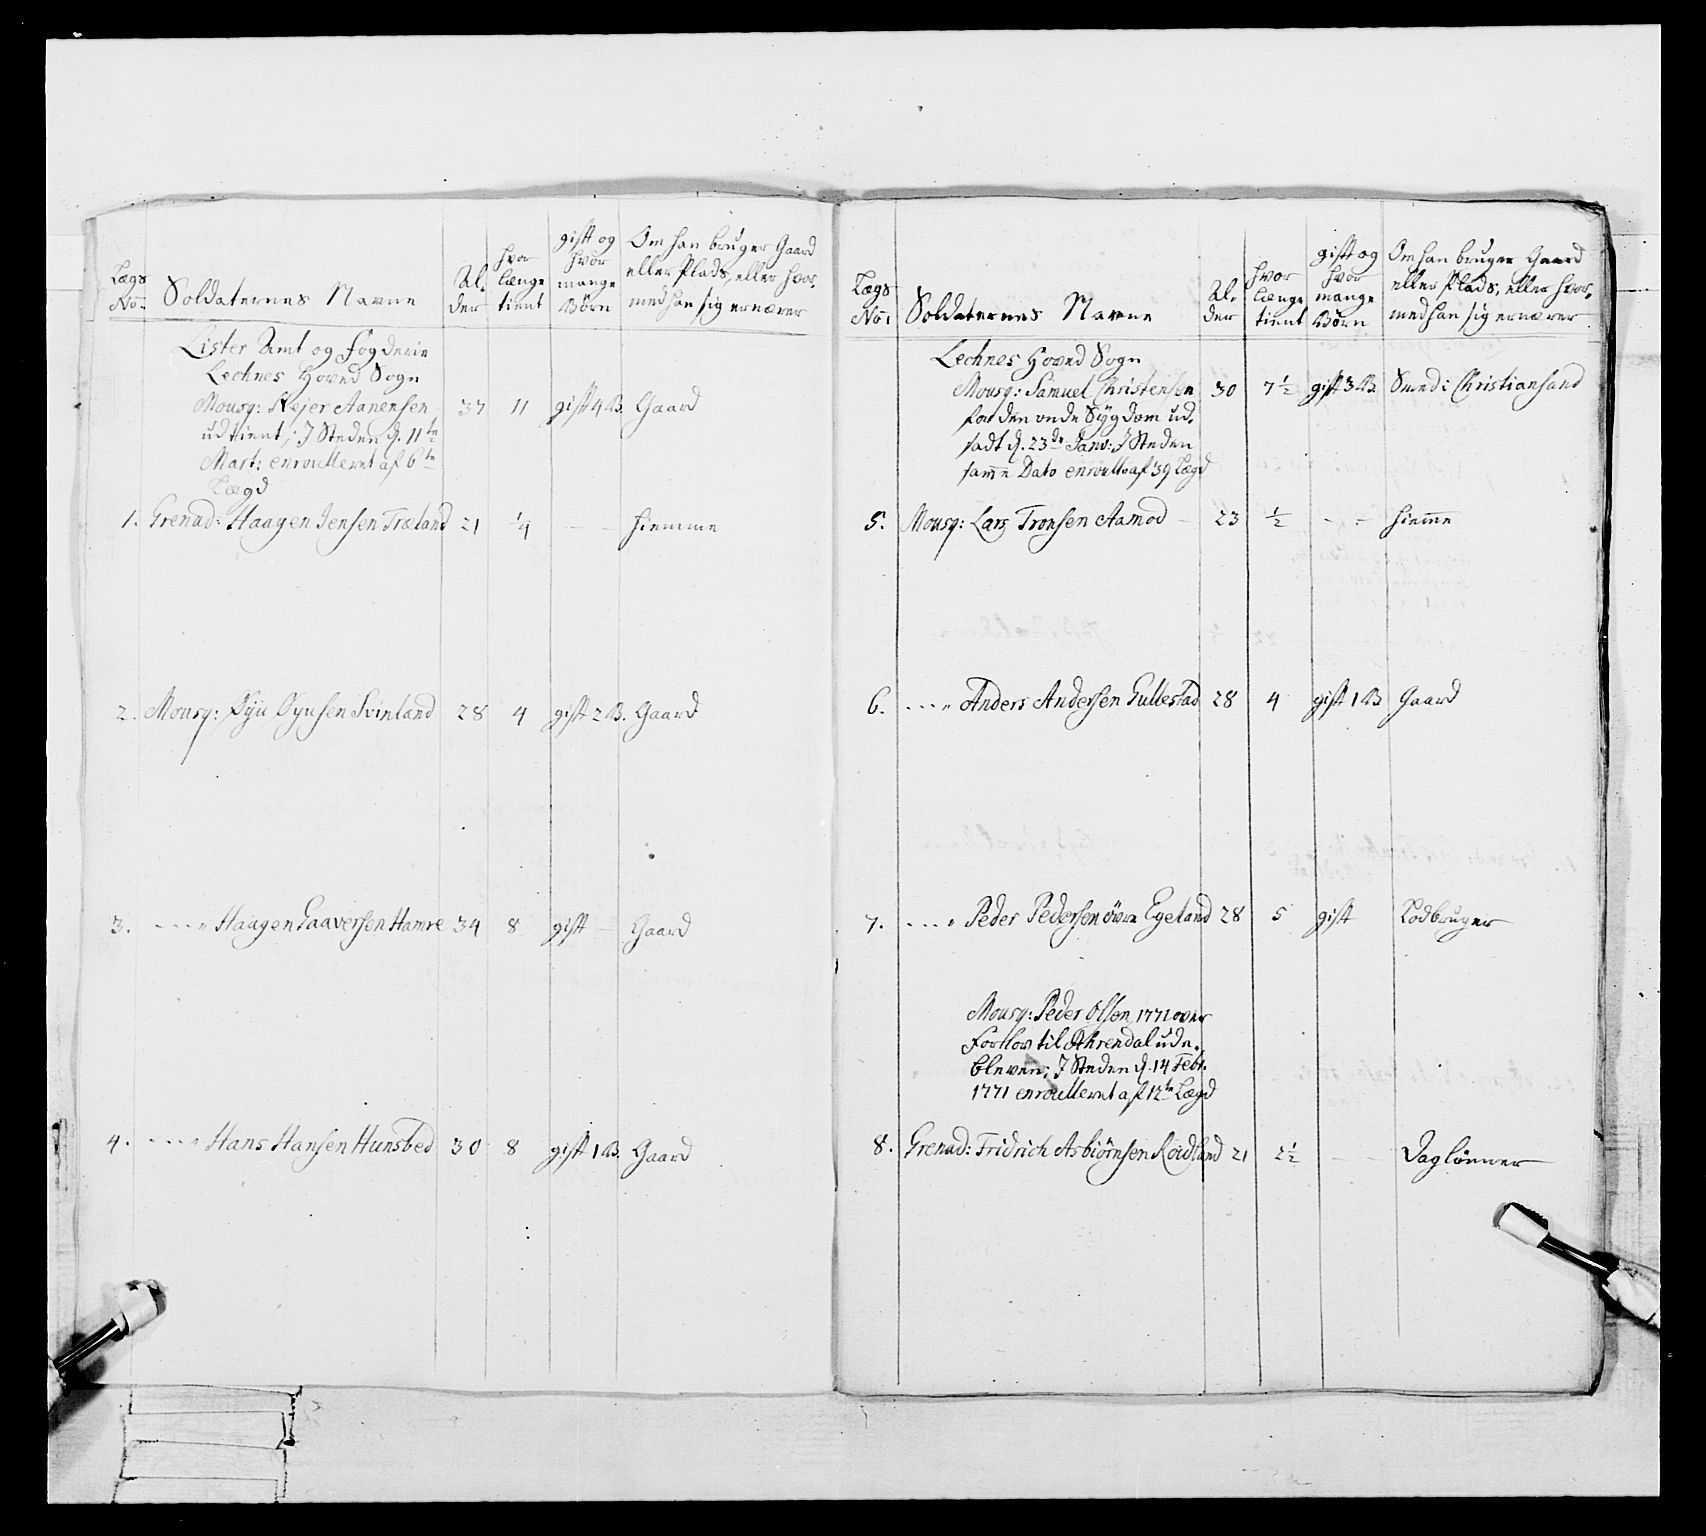 Lægs No: Soldaternes Navne Al- der hvor længe tient gift og hvor mange Börn Om han bruger Gaard eller Plads, eller hvor- med han sig ernærer
Lister Amt og Fogderie
Lechnes Hoved Sogn
Mousq: Rejer Aanensen 37 11 gift 4 B. Gaard
udtient; J Steden d. 11te
Mart: enroulleret af 6te
Lægd
1. Grenad: Haagen Jensen Træland 21 1/4 — — hiemme
2. Mousq: Öyu Öyusen Svinland 28 4 gift 2 B. Gaard
3. ---„ Haagen Gaaversen Hamre 34 8 gift — Gaard
4. ---„ Hans Hansen Hunsbed 30 8 gift 1 B. Gaard
Lægs No: Soldaternes Navne Al- der hvor længe tient gift og hvor mange Börn Om han bruger Gaard eller Plads, eller hvor- med han sig ernærer
Lechnes Hoved Sogn
Mousq: Samuel Christensen 30 7 1/2 gift 3 B. Smed i Christiansand
for den onde Sygdom ud-
sadt d. 23de Janv: J Steden
samme Dato enroulle af 39 Lægd
5. Mousq: Lars Tronsen Aamod — 23 1/2 - - hiemme
6. ---„ Anders Andersen Gullestad 28 4 gift 1 B Gaard
7. ---„ Peder Pedersen övre Egeland 28 5 gift Lodbruger
Mousq: Peder Olsen 1771 over
Forlov til Ahrendal ude-
bleven; J Steden d. 14 Febr.
1771 enroulleret af 12te Lægd
8. Grenad: Fridrich Asbiörnsen Roidland 21 2 1/2 — — Daglönner